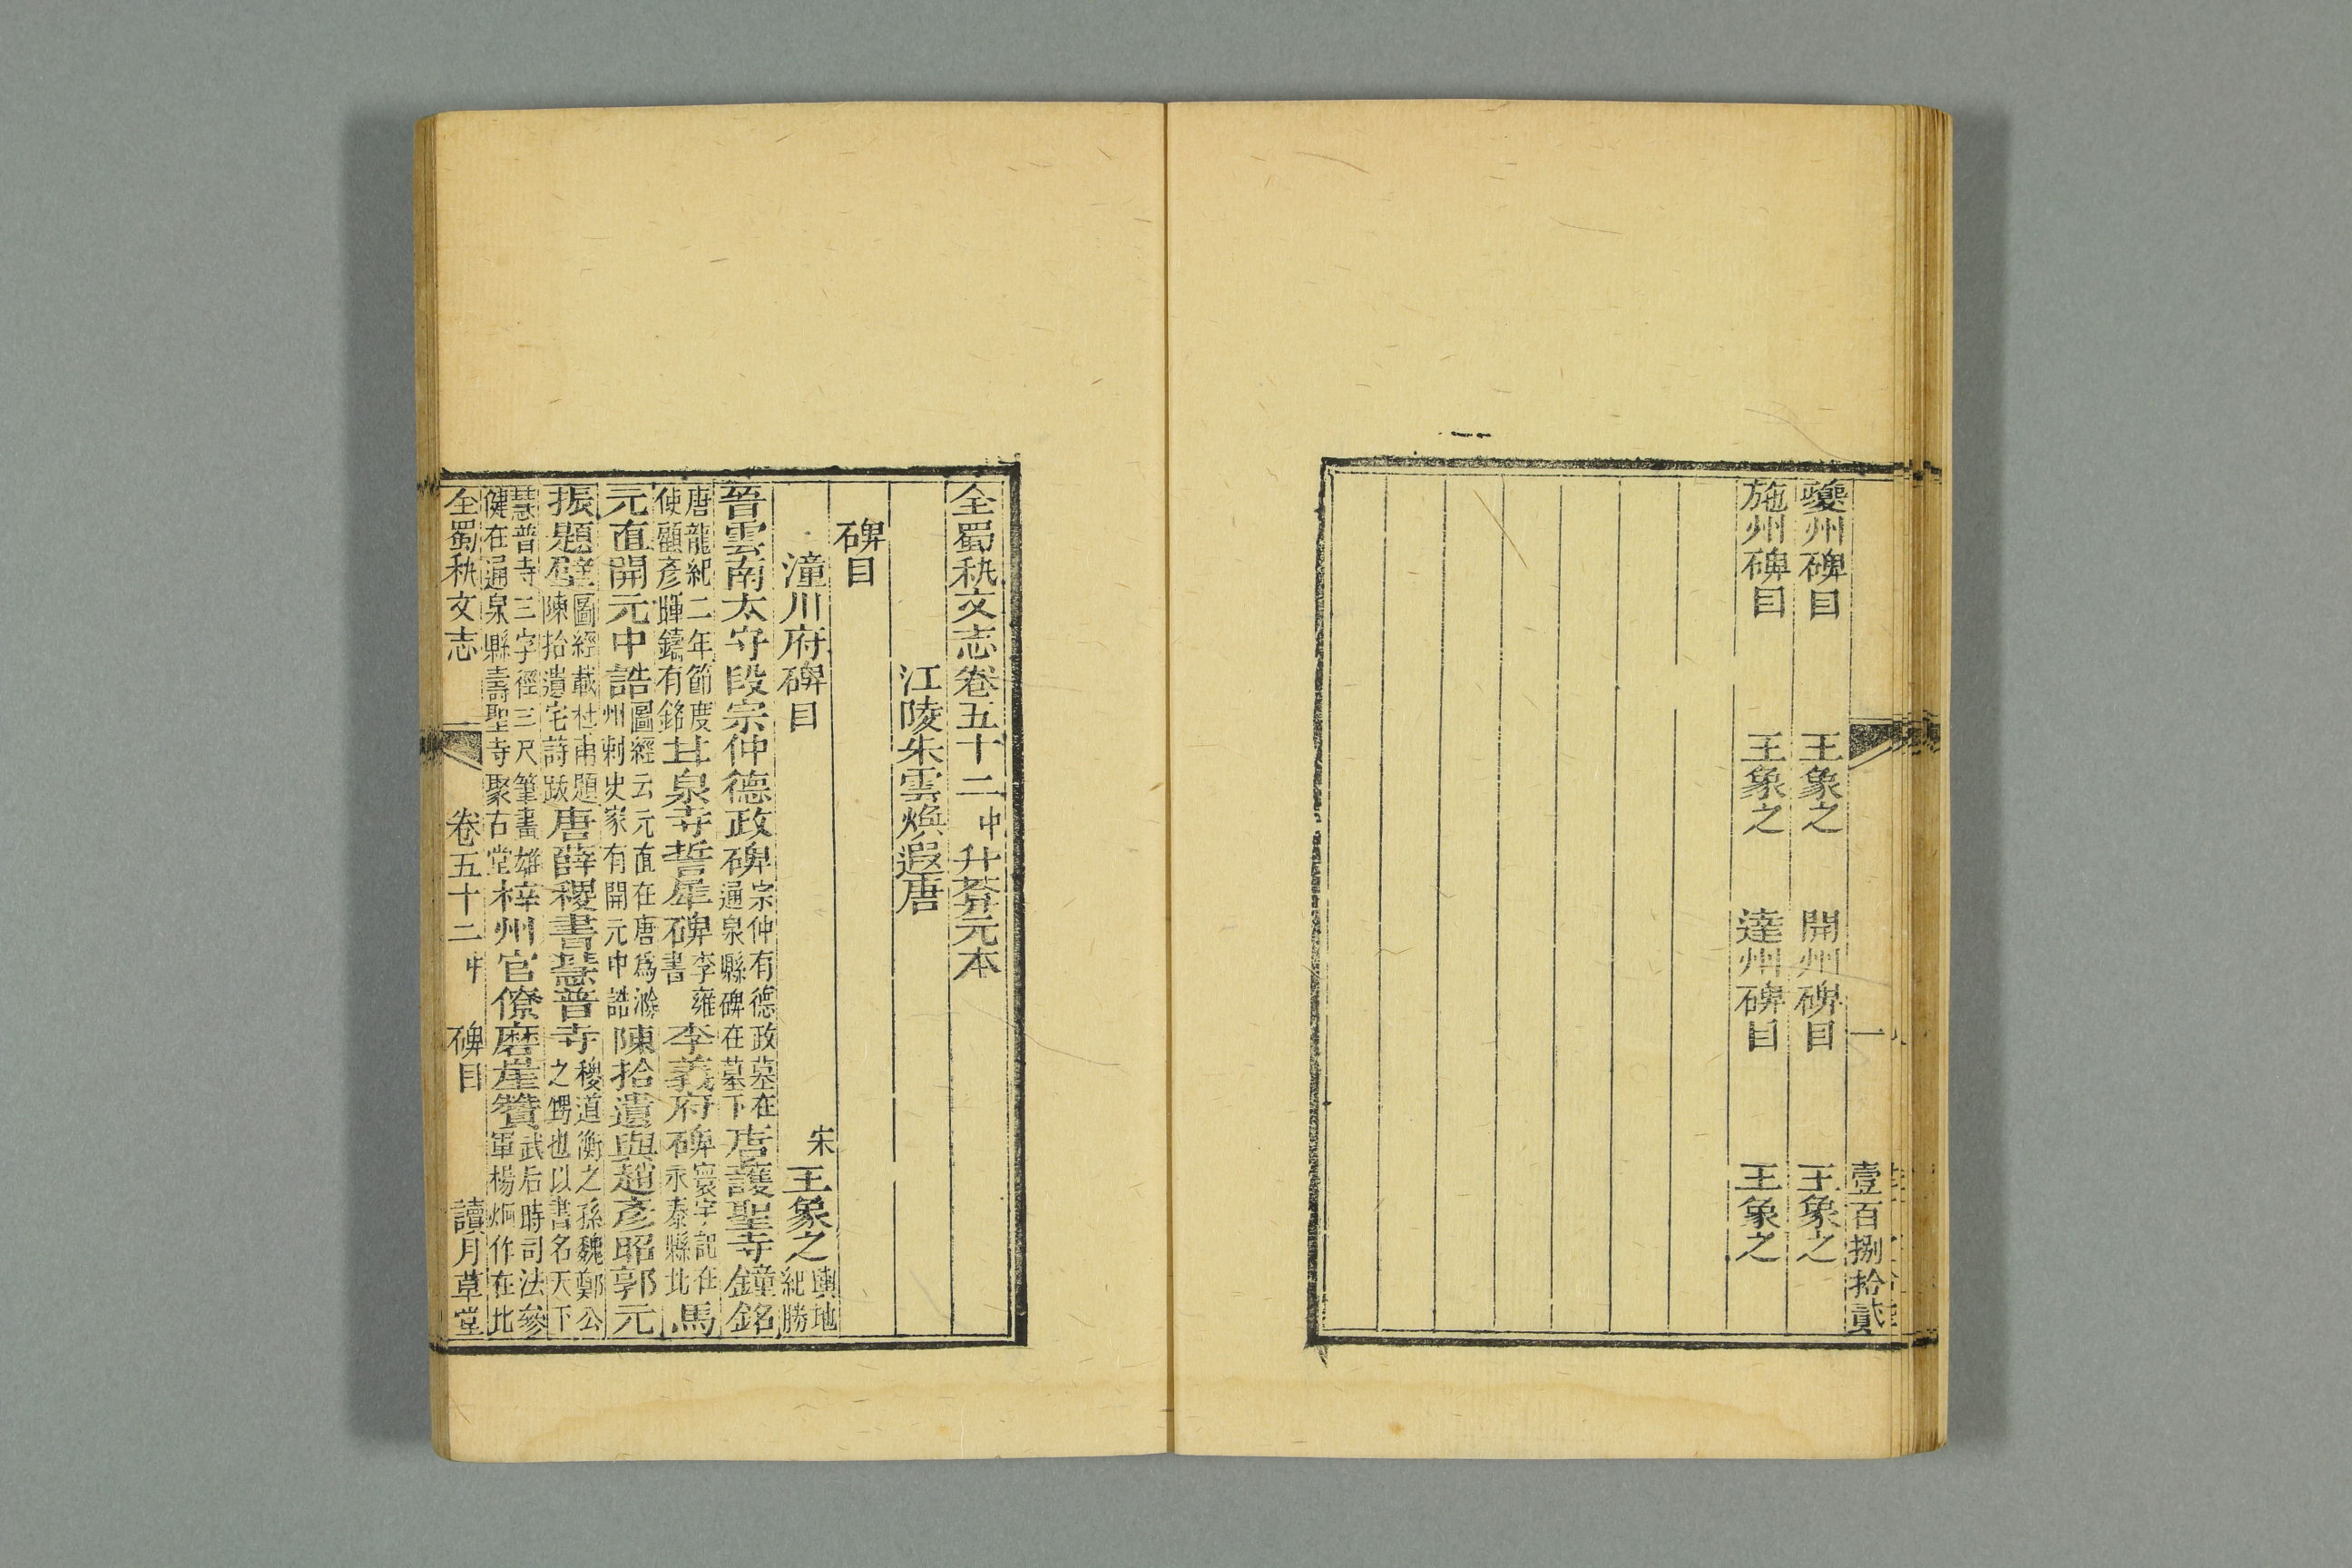 一
壹百捌拾貳
夔州碑目　王象之　開州碑目　王象之
施州碑目　王象之　達州碑目　王象之
全蜀秇文志卷五十二中　升菴元本
江陵朱雲煥遐唐
碑目
潼川府碑目　宋王象之輿地紀勝
晉雲南太守段宗仲德政碑宗仲有德政墓在通泉縣碑在墓下唐護聖寺鐘銘
唐龍紀二年節度使顧彥暉鑄有銘甘泉寺誓犀碑李雍書李義府碑寰宇記在永泰縣北馬
元直開元中誥圖經云元直在唐爲滁州刺史家有開元中誥陳拾遺與趙彥昭郭元
振題壁圖經載杜甫題陳拾遺宅詩跋唐薛稷書慧普寺稷道衡之孫魏鄭公之甥也以書名天下
慧普寺三字徑三尺筆畫雄健在通泉縣壽聖寺聚古堂梓州官僚磨崖贊武后時司法參軍楊炯作在北
全蜀秇文志　卷五十二中　碑目　讀月草堂